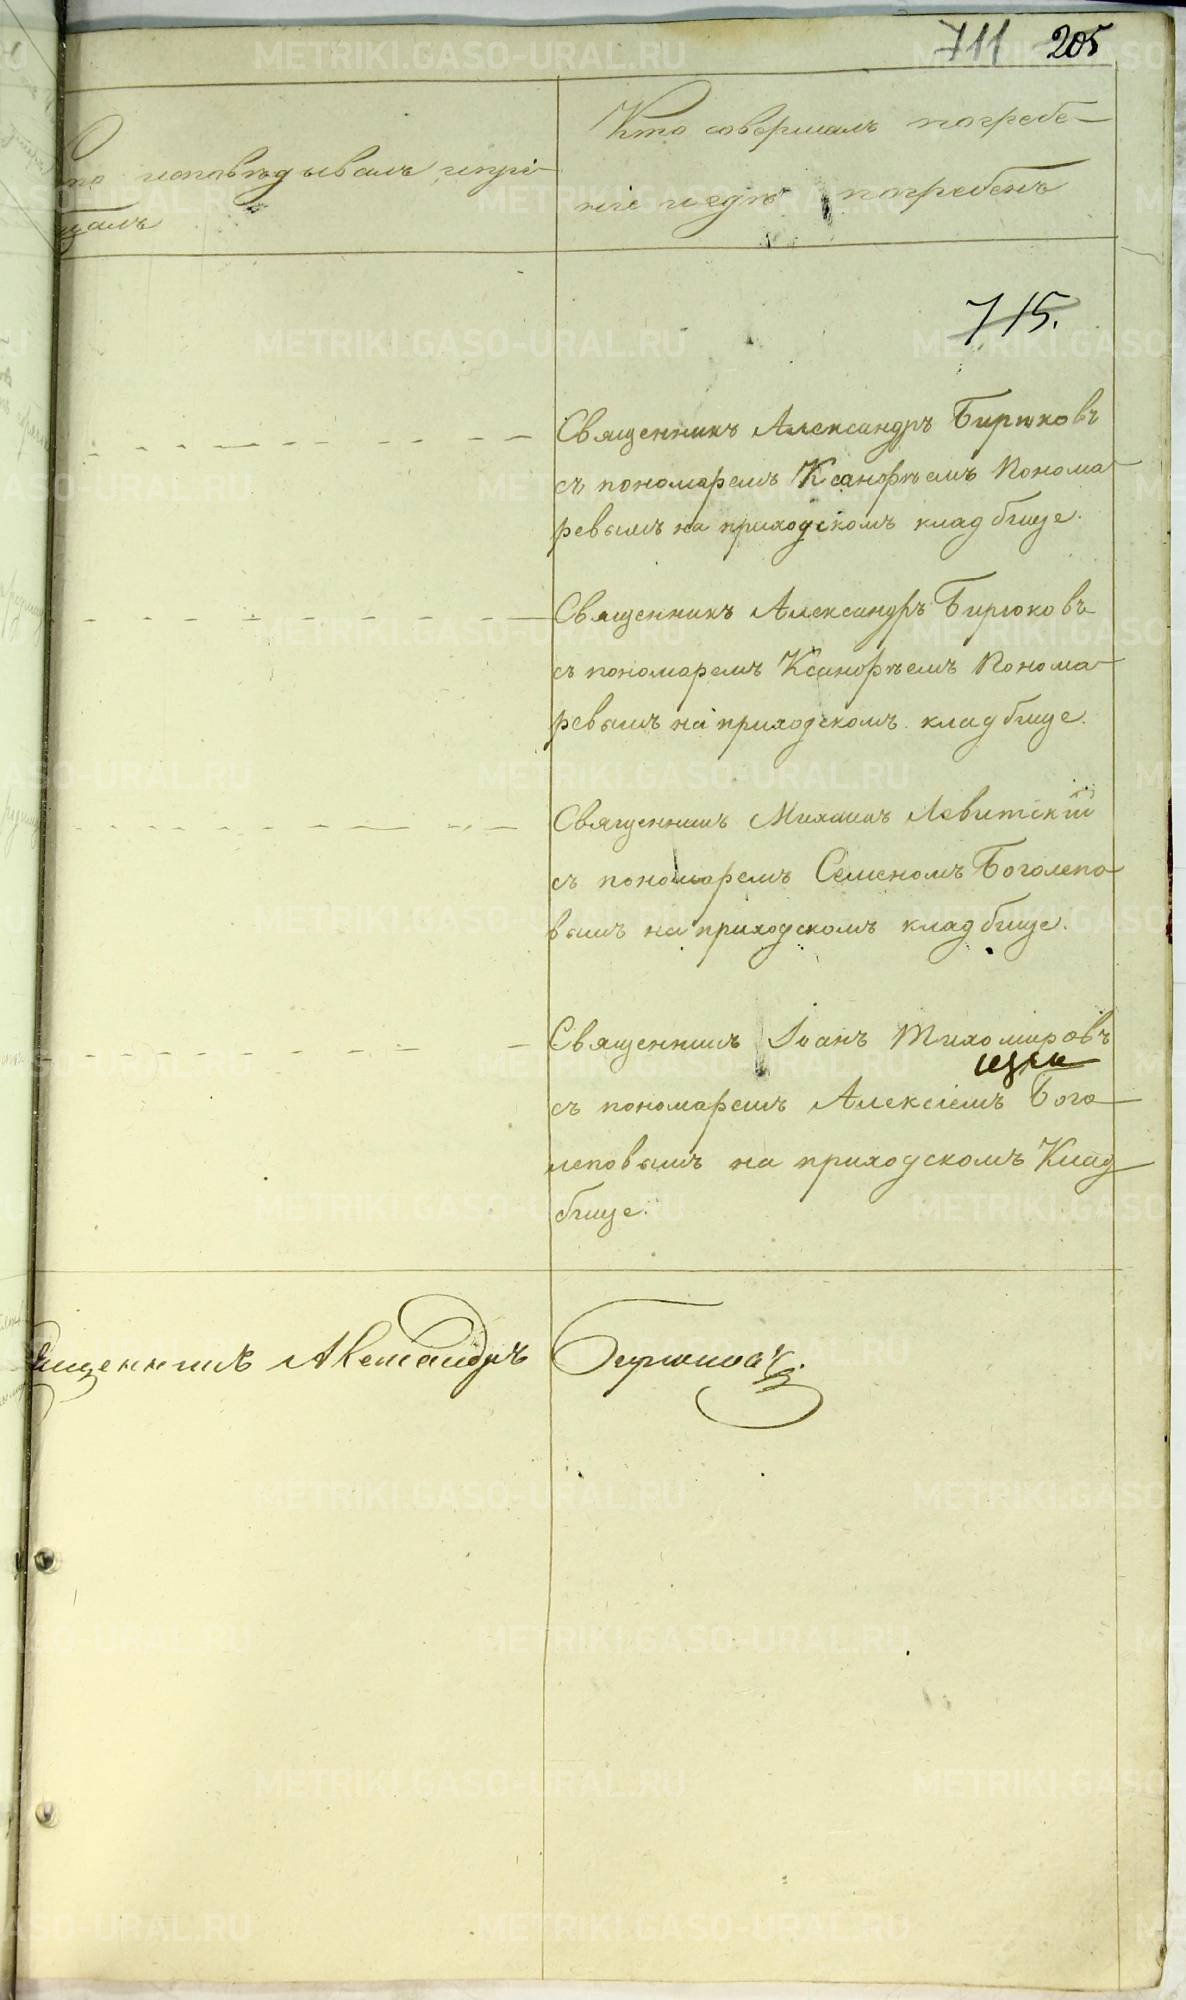 711 205
то исповѣдывалъ и прі-
щалъ
Кто совершалъ погребе-
ніе и гдѣ погребенъ
715.
Священникъ Александръ Бирюковъ
съ пономаремъ Ксанофѣемъ Понома-
ревымъ на приходскомъ кладбище.
Священникъ Александръ Бирюковъ
съ пономаремъ Ксанофѣемъ Понома-
ревымъ на приходскомъ кладбище.
Священникъ Михаилъ Левитскій
съ пономаремъ Семеномъ Боголепо-
вымъ на приходскомъ кладбище.
Священникъ Іоанъ Тихомировъ
съ пономаремъ Алексіемъ Бого-
леповымъ на приходскомъ Клад-
бище.
ященникъ Александръ Бирюковъ
METRIKI.GASO-URAL.RU